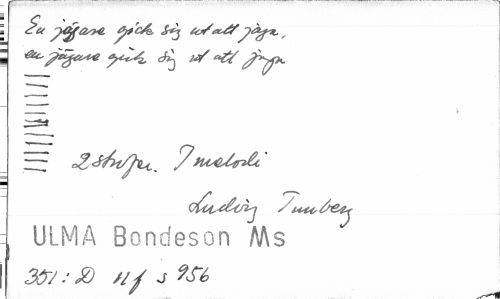 En jägare gick sig ut att jaga,
en jägare gick sig ut att jaga
2 strofer. 1 melodi
Ludvig Tunberg
ULMA Bondeson Ms
351:D nf s 956